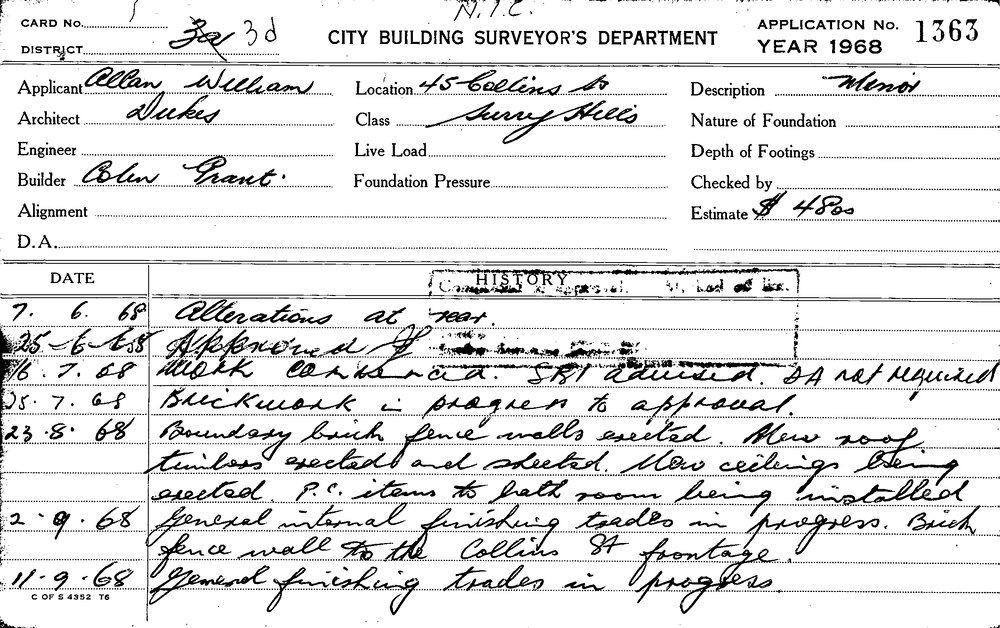 N.I.C.
CARD No.
DISTRICT 3a 3d
CITY BUILDING SURVEYOR'S DEPARTMENT
APPLICATION No. 1363
YEAR 1968
Applicant Allan William
Location 45 Collins St
Description Minor
Architect Dukes
Class Surry Hills
Nature of Foundation
Engineer
Live Load
Depth of Footings
Builder Colin Grant.
Foundation Pressure
Checked by
Alignment
Estimate $ 4800
D.A.
DATE HISTORY
7. 6. 68 Alterations at rear.
25-6-68 Approved
16. 7. 68 Work commenced. SBI advised. DA not required
25. 7. 68 Brickwork in progress to approval.
23. 8. 68 Boundary brick fence walls erected. New roof
timbers erected and sheeted. New ceilings being
erected. P.C. items to bath room being installed
2. 9. 68 General internal finishing trades in progress. Brick
fence wall to the Collins St frontage.
11. 9. 68 General finishing trades in progress.
C OF S 4352 T6